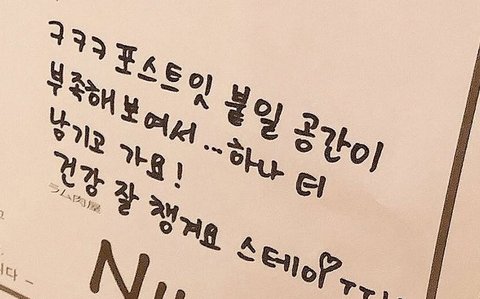 ㅋㅋㅋ 포스트잇 붙일 공간이
부족해 보여서...하나 더
남기고 가요!
건강 잘 챙겨요 스테이♡
ラム肉屋
다 -